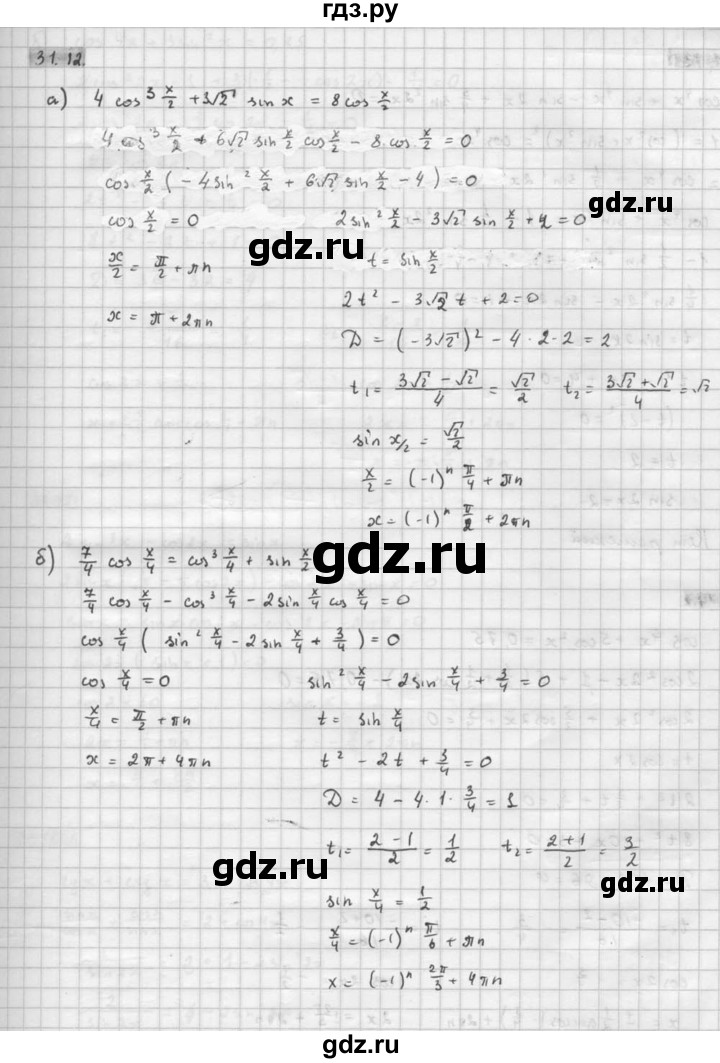 гдз.ру
31.12.
а) 4 cos³ x/2 + 3√2 sin x = 8 cos x/2
4 cos³ x/2 + 6√2 sin x/2 cos x/2 − 8 cos x/2 = 0
cos x/2 ( −4 sin² x/2 + 6√2 sin x/2 − 4 ) = 0
cos x/2 = 0    2 sin² x/2 − 3√2 sin x/2 + 2 = 0
x/2 = π/2 + πn    t = sin x/2
x = π + 2πn    2t² − 3√2 t + 2 = 0
D = (−3√2)² − 4 · 2 · 2 = 2
t₁ = (3√2 − √2)/4 = √2/2    t₂ = (3√2 + √2)/4 = √2
sin x/2 = √2/2
x/2 = (−1)ⁿ π/4 + πn
x = (−1)ⁿ π/2 + 2πn
б) 7/4 cos x/4 = cos³ x/4 + sin x/2
7/4 cos x/4 − cos³ x/4 − 2 sin x/4 cos x/4 = 0
cos x/4 ( sin² x/4 − 2 sin x/4 + 3/4 ) = 0
cos x/4 = 0    sin² x/4 − 2 sin x/4 + 3/4 = 0
x/4 = π/2 + πn    t = sin x/4
x = 2π + 4πn    t² − 2t + 3/4 = 0
D = 4 − 4 · 1 · 3/4 = 1
t₁ = (2 − 1)/2 = 1/2    t₂ = (2 + 1)/2 = 3/2
sin x/4 = 1/2
x/4 = (−1)ⁿ π/6 + πn
x = (−1)ⁿ 2π/3 + 4πn
gdz.ru
gdz.ru
gdz.ru
gdz.ru
gdz.ru
gdz.ru
gdz.ru
gdz.ru
гдз.ру